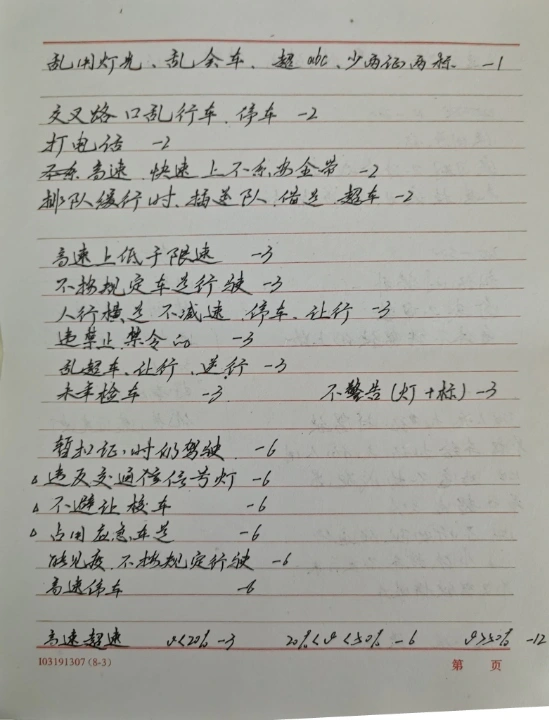 乱用灯光、乱会车、超abc、少两证两标 -1
交叉路口乱行车、停车 -2
打电话 -2
高速、快速上不系安全带 -2
排队缓行时、插道队、借道、超车 -2
高速上低于限速 -3
不按规定车道行驶 -3
人行横道不减速、停车、让行 -3
违禁止、禁令的 -3
乱超车、让行、逆行 -3
未年检车 -3 不警告(灯+标) -3
暂扣证时仍驾驶 -6
△违反交通信号灯 -6
△不避让校车 -6
△占用应急车道 -6
能见度、不按规定行驶 -6
高速停车 -6
高速超速 v<20% -3 20%<v<50% -6 v≥50% -12
103191307 (8-3) 第 页